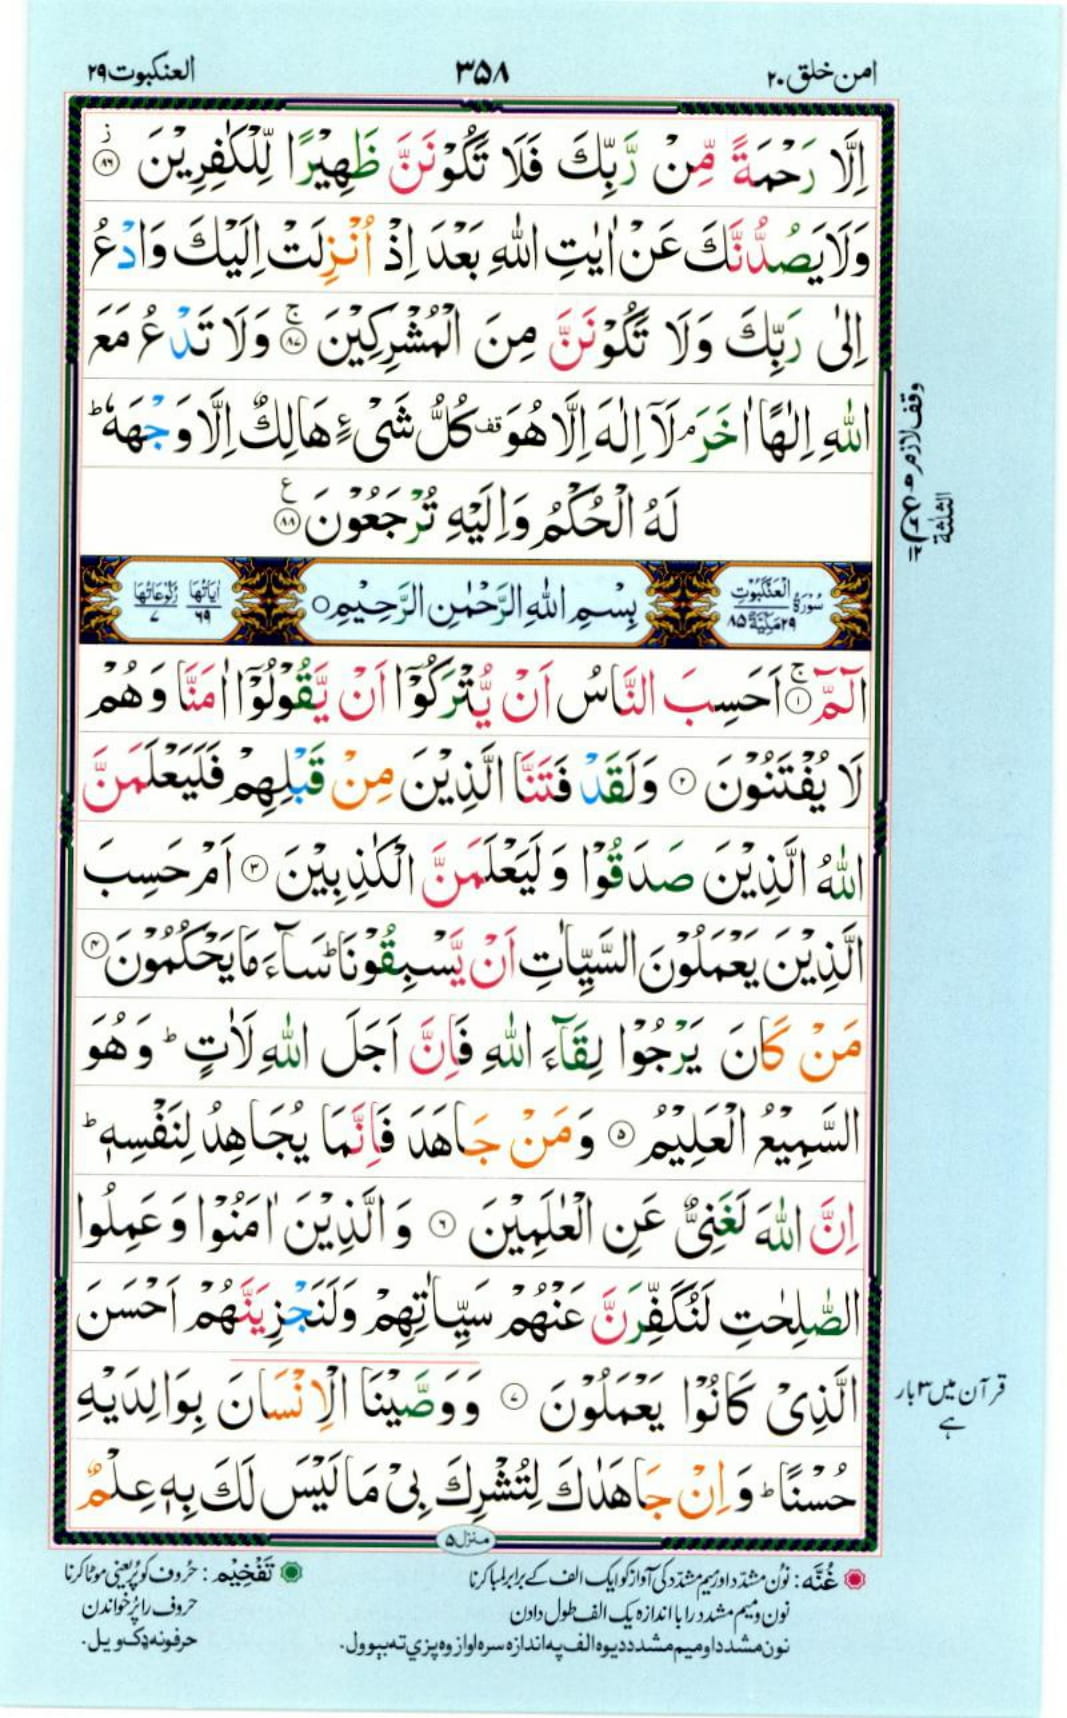 امن خلق ۲۰
۳۵۸
العنكبوت ۲۹
اِلَّا رَحْمَةً مِّنْ رَّبِّكَ فَلَا تَكُوْنَنَّ ظَهِيْرًا لِّلْكٰفِرِيْنَ ۸۶ ز
وَلَا يَصُدُّنَّكَ عَنْ اٰيٰتِ اللّٰهِ بَعْدَ اِذْ اُنْزِلَتْ اِلَيْكَ وَادْعُ
اِلٰى رَبِّكَ وَلَا تَكُوْنَنَّ مِنَ الْمُشْرِكِيْنَ ۸۷ ج وَلَا تَدْعُ مَعَ
اللّٰهِ اِلٰهًا اٰخَرَ ۘ لَآ اِلٰهَ اِلَّا هُوَ قف كُلُّ شَيْءٍ هَالِكٌ اِلَّا وَجْهَهٗ ؕ
لَهُ الْحُكْمُ وَاِلَيْهِ تُرْجَعُوْنَ ۸۸ ع
سُوْرَةُ الْعَنْكَبُوْتِ ۲۹ مَكِّيَّةٌ ۸۵
بِسْمِ اللّٰهِ الرَّحْمٰنِ الرَّحِيْمِ ○
اٰيَاتُهَا ۶۹ رُكُوْعَاتُهَا ۷
الٓمّٓ ۱ ج اَحَسِبَ النَّاسُ اَنْ يُّتْرَكُوْٓا اَنْ يَّقُوْلُوْٓا اٰمَنَّا وَهُمْ
لَا يُفْتَنُوْنَ ۲ وَلَقَدْ فَتَنَّا الَّذِيْنَ مِنْ قَبْلِهِمْ فَلَيَعْلَمَنَّ
اللّٰهُ الَّذِيْنَ صَدَقُوْا وَلَيَعْلَمَنَّ الْكٰذِبِيْنَ ۳ اَمْ حَسِبَ
الَّذِيْنَ يَعْمَلُوْنَ السَّيِّاٰتِ اَنْ يَّسْبِقُوْنَا ؕ سَآءَ مَا يَحْكُمُوْنَ ۴
مَنْ كَانَ يَرْجُوْا لِقَآءَ اللّٰهِ فَاِنَّ اَجَلَ اللّٰهِ لَاٰتٍ ؕ وَهُوَ
السَّمِيْعُ الْعَلِيْمُ ۵ وَمَنْ جَاهَدَ فَاِنَّمَا يُجَاهِدُ لِنَفْسِهٖ ؕ
اِنَّ اللّٰهَ لَغَنِيٌّ عَنِ الْعٰلَمِيْنَ ۶ وَالَّذِيْنَ اٰمَنُوْا وَعَمِلُوا
الصّٰلِحٰتِ لَنُكَفِّرَنَّ عَنْهُمْ سَيِّاٰتِهِمْ وَلَنَجْزِيَنَّهُمْ اَحْسَنَ
الَّذِيْ كَانُوْا يَعْمَلُوْنَ ۷ وَوَصَّيْنَا الْاِنْسَانَ بِوَالِدَيْهِ
حُسْنًا ؕ وَاِنْ جَاهَدٰكَ لِتُشْرِكَ بِيْ مَا لَيْسَ لَكَ بِهٖ عِلْمٌ
وقف لازم
الثلثة
قرآن میں ۳ بار
ہے
منزل ۵
غُنَّه: نون مشدد اور میم مشدد کی آواز کو ایک الف کے برابر لمبا کرنا
نون و میم مشدد را با اندازه یک الف طول دادن
نون مشدد او میم مشدد دیوه الف په اندازه سره اواز وه پزي ته بیوول.
تَفْخِيْم: حروف کو پُر یعنی موٹا کرنا
حروف را پُر خواندن
حرفونه ډک ویل.